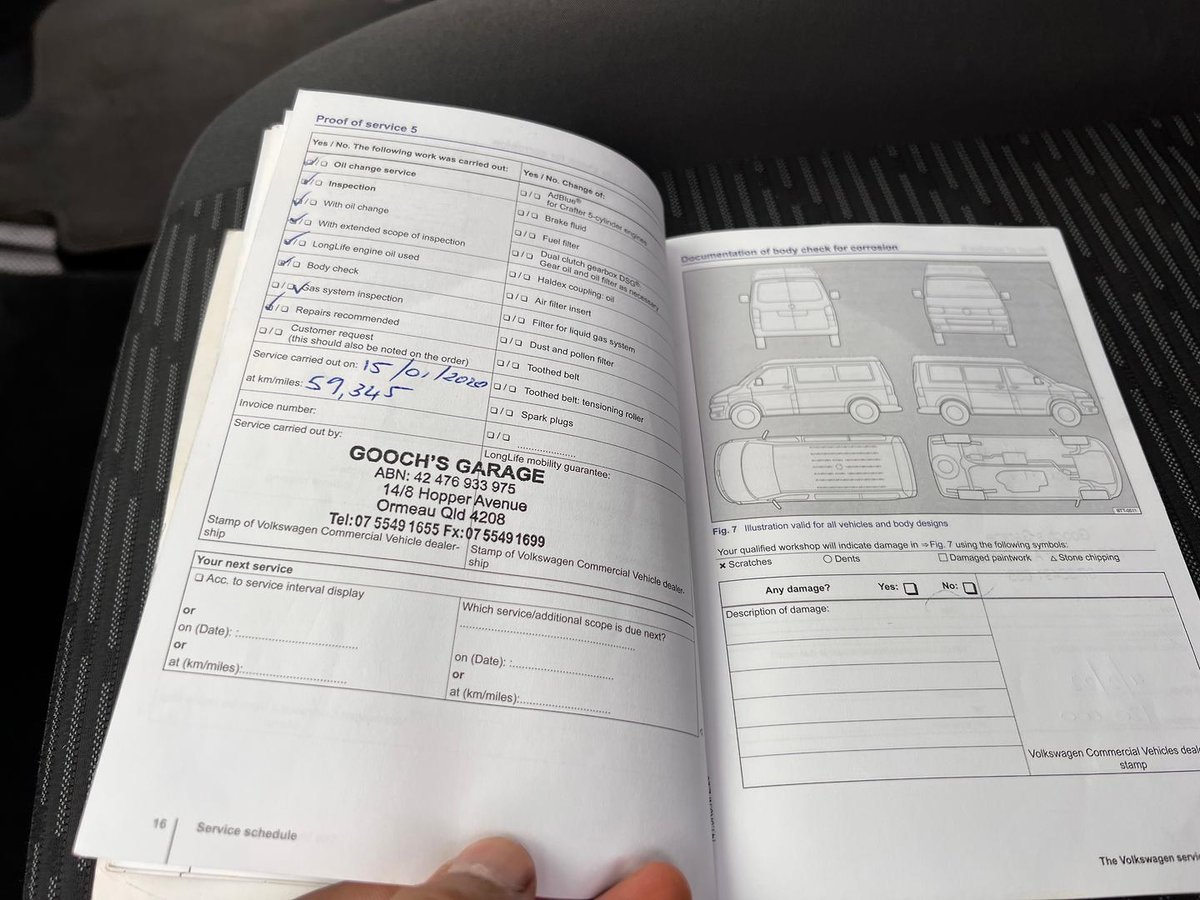 Proof of service 5
Yes / No. The following work was carried out:
❏ / ❏ Oil change service
❏ / ❏ Inspection
❏ / ❏ With oil change
❏ / ❏ With extended scope of inspection
❏ / ❏ LongLife engine oil used
❏ / ❏ Body check
❏ / ❏ Gas system inspection
❏ / ❏ Repairs recommended
❏ / ❏ Customer request
(this should also be noted on the order)
Service carried out on: 15/01/2020
at km/miles: 59,345
Invoice number:
Service carried out by:
Yes / No. Change of:
❏ / ❏ AdBlue®
for Crafter 5-cylinder engines
❏ / ❏ Brake fluid
❏ / ❏ Fuel filter
❏ / ❏ Dual clutch gearbox DSG®:
Gear oil and oil filter as necessary
❏ / ❏ Haldex coupling: oil
❏ / ❏ Air filter insert
❏ / ❏ Filter for liquid gas system
❏ / ❏ Dust and pollen filter
❏ / ❏ Toothed belt
❏ / ❏ Toothed belt: tensioning roller
❏ / ❏ Spark plugs
❏ / ❏ ....................
LongLife mobility guarantee:
GOOCH'S GARAGE
ABN: 42 476 933 975
14/8 Hopper Avenue
Ormeau Qld 4208
Tel: 07 5549 1655 Fx: 07 5549 1699
Stamp of Volkswagen Commercial Vehicle dealer-
ship
Stamp of Volkswagen Commercial Vehicle dealer-
ship
Your next service
❏ Acc. to service interval display
or
on (Date): :..............................
or
at (km/miles):..........................
Which service/additional scope is due next?
............................................
on (Date): :..........................
or
at (km/miles):.......................
16 Service schedule
Documentation of body check for corrosion
Fig. 7 Illustration valid for all vehicles and body designs
Your qualified workshop will indicate damage in ⇒ Fig. 7 using the following symbols:
✖ Scratches ○ Dents □ Damaged paintwork △ Stone chipping
Any damage? Yes: ❏ No: ❏
Description of damage:
Volkswagen Commercial Vehicles deal
stamp
The Volkswagen servi